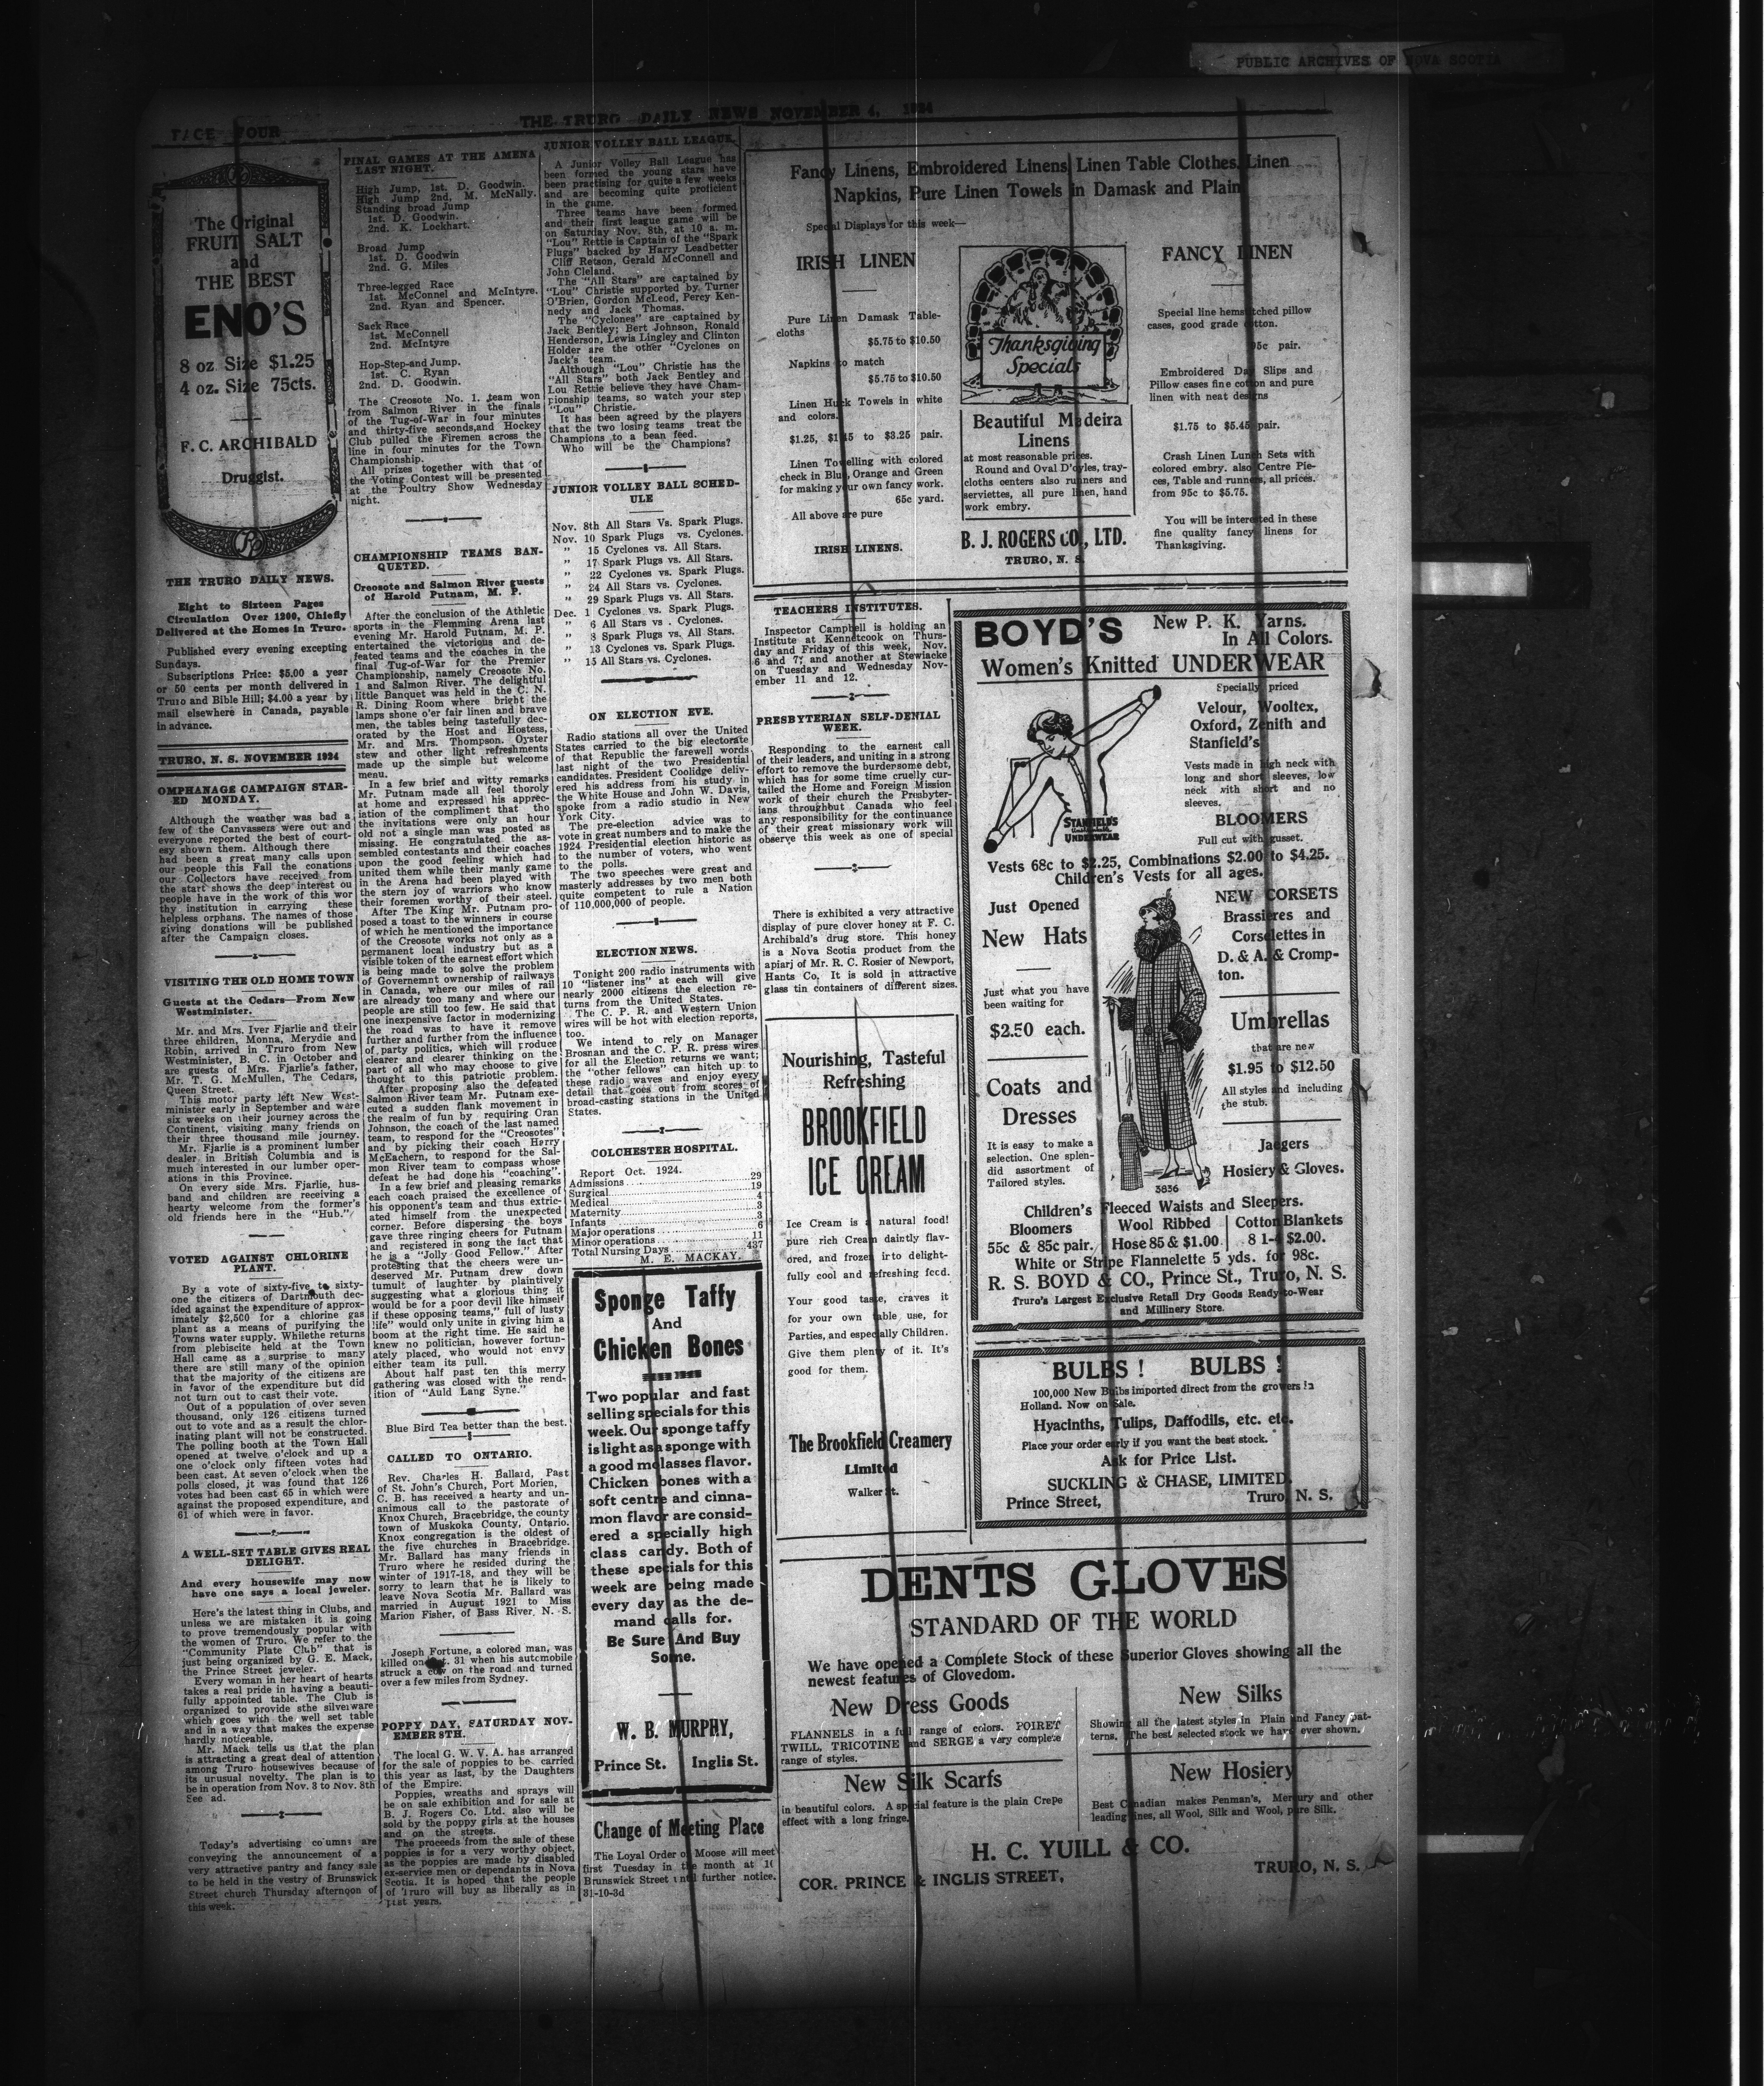 PUBLIC ARCHIVES OF NOVA SCOTIA
PAGE FOUR
THE TRURO DAILY NEWS NOVEMBER 4, 1924
The Original
FRUIT SALT
and
THE BEST
ENO'S
8 oz Size $1.25
4 oz. Size 75cts.
F. C. ARCHIBALD
Druggist.
THE TRURO DAILY NEWS.
Eight to Sixteen Pages
Circulation Over 1200, Chiefly
Delivered at the Homes in Truro.
Published every evening excepting
Sundays.
Subscriptions Price: $5.00 a year
or 50 cents per month delivered in
Truro and Bible Hill; $4.00 a year by
mail elsewhere in Canada, payable
in advance.
TRURO, N. S. NOVEMBER 1924
ORPHANAGE CAMPAIGN STAR-
ED MONDAY.
Although the weather was bad a
few of the Canvassers were out and
everyone reported the best of court-
esy shown them. Although there
had been a great many calls upon
our people this Fall the donations
our Collectors have received from
the start shows the deep interest ou
people have in the work of this wor
thy institution in carrying these
helpless orphans. The names of those
giving donations will be published
after the Campaign closes.
VISITING THE OLD HOME TOWN
Guests at the Cedars—From New
Westminister.
Mr. and Mrs. Iver Fjarlie and their
three children, Monna, Merydie and
Robin, arrived in Truro from New
Westminister, B. C. in October and
are guests of Mrs. Fjarlie's father,
Mr. T. G. McMullen, The Cedars,
Queen Street.
This motor party left New West-
minister early in September and were
six weeks on their journey across the
Continent, visiting many friends on
their three thousand mile journey.
Mr. Fjarlie is a prominent lumber
dealer in British Columbia and is
much interested in our lumber oper-
ations in this Province.
On every side Mrs. Fjarlie, hus-
band and children are receiving a
hearty welcome from the former's
old friends here in the "Hub."
VOTED AGAINST CHLORINE
PLANT.
By a vote of sixty-five to sixty-
one the citizens of Dartmouth dec-
ided against the expenditure of approx-
imately $2,500 for a chlorine gas
plant as a means of purifying the
Towns water supply. Whilethe returns
from plebiscite held at the Town
Hall came as a surprise to many
there are still many of the opinion
that the majority of the citizens are
in favor of the expenditure but did
not turn out to cast their vote.
Out of a population of over seven
thousand, only 126 citizens turned
out to vote and as a result the chlor-
inating plant will not be constructed.
The polling booth at the Town Hall
opened at twelve o'clock and up a
one o'clock only fifteen votes had
been cast. At seven o'clock when the
polls closed, it was found that 126
votes had been cast 65 in which were
against the proposed expenditure, and
61 of which were in favor.
A WELL-SET TABLE GIVES REAL
DELIGHT.
And every housewife may now
have one says a local jeweler.
Here's the latest thing in Clubs, and
unless we are mistaken it is going
to prove tremendously popular with
the women of Truro. We refer to the
"Community Plate Club" that is
just being organized by G. E. Mack,
the Prince Street jeweler.
Every woman in her heart of hearts
takes a real pride in having a beauti-
fully appointed table. The Club is
organized to provide sthe silverware
which goes with the well set table
and in a way that makes the expense
hardly noticeable.
Mr. Mack tells us that the plan
is attracting a great deal of attention
among Truro housewives because of
its unusual novelty. The plan is to
be in operation from Nov. 3 to Nov. 8th
See ad.
Today's advertising columns are
conveying the announcement of a
very attractive pantry and fancy sale
to be held in the vestry of Brunswick
Street church Thursday afternoon of
this week.
FINAL GAMES AT THE AMENA
LAST NIGHT.
High Jump, 1st. D. Goodwin.
High Jump 2nd, M. McNally.
Standing broad Jump
1st. D. Goodwin.
2nd. K. Lockhart.
Broad Jump
1st. D. Goodwin
2nd. G. Miles
Three-legged Race
1st. McConnel and McIntyre.
2nd. Ryan and Spencer.
Sack Race
1st. McConnell
2nd. McIntyre
Hop-Step-and Jump.
1st. C. Ryan
2nd. D. Goodwin.
The Creosote No. 1. team won
from Salmon River in the finals
of the Tug-of-War in four minutes
and thirty-five seconds,and Hockey
Club pulled the Firemen across the
line in four minutes for the Town
Championship.
All prizes together with that of
the Voting Contest will be presented
at the Poultry Show Wednesday
night.
CHAMPIONSHIP TEAMS BAN-
QUETED.
Creosote and Salmon River guests
of Harold Putnam, M. P.
After the conclusion of the Athletic
sports in the Flemming Arena last
evening Mr. Harold Putnam, M. P.
entertained the victorious and de-
feated teams and the coaches in the
final Tug-of-War for the Premier
Championship, namely Creosote No.
1 and Salmon River. The delightful
little Banquet was held in the C. N.
R. Dining Room where bright the
lamps shone o'er fair linen and brave
men, the tables being tastefully dec-
orated by the Host and Hostess,
Mr. and Mrs. Thompson. Oyster
stew and other light refreshments
made up the simple but welcome
menu.
In a few brief and witty remarks
Mr. Putnam made all feel thoroly
at home and expressed his apprec-
iation of the compliment that tho
the invitations were only an hour
old not a single man was posted as
missing. He congratulated the as-
sembled contestants and their coaches
upon the good feeling which had
united them while their manly game
in the Arena had been played with
the stern joy of warriors who know
their foremen worthy of their steel.
After The King Mr. Putnam pro-
posed a toast to the winners in course
of which he mentioned the importance
of the Creosote works not only as a
permanent local industry but as a
visible token of the earnest effort which
is being made to solve the problem
of Governemnt ownership of railways
in Canada, where our miles of rail
are already too many and where our
people are still too few. He said that
one inexpensive factor in modernizing
the road was to have it remove
further and further from the influence
of party politics, which will produce
clearer and clearer thinking on the
part of all who may choose to give
thought to this patriotic problem.
After proposing also the defeated
Salmon River team Mr. Putnam exe-
cuted a sudden flank movement in
the realm of fun by requiring Oran
Johnson, the coach of the last named
team, to respond for the "Creosotes"
and by picking their coach Harry
McEachern, to respond for the Sal-
mon River team to compass whose
defeat he had done his "coaching".
In a few brief and pleasing remarks
each coach praised the excellence of
his opponent's team and thus extric-
ated himself from the unexpected
corner. Before dispersing the boys
gave three ringing cheers for Putnam
and registered in song the fact that
he is a "Jolly Good Fellow." After
protesting that the cheers were un-
deserved Mr. Putnam drew down
tumult of laughter by plaintively
suggesting what a glorious thing it
would be for a poor devil like himself
if these opposing teams," full of lusty
life" would only unite in giving him a
boom at the right time. He said he
knew no politician, however fortun-
ately placed, who would not envy
either team its pull.
About half past ten this merry
gathering was closed with the rend-
ition of "Auld Lang Syne."
Blue Bird Tea better than the best.
CALLED TO ONTARIO.
Rev. Charles H. Ballard, Past
of St. John's Church, Port Morien,
C. B. has received a hearty and un-
animous call to the pastorate of
Knox Church, Bracebridge, the county
town of Muskoka County, Ontario.
Knox congregation is the oldest of
the five churches in Bracebridge.
Mr. Ballard has many friends in
Truro where he resided during the
winter of 1917-18, and they will be
sorry to learn that he is likely to
leave Nova Scotia Mr. Ballard was
married in August 1921 to Miss
Marion Fisher, of Bass River, N. S.
Joseph Fortune, a colored man, was
killed on 31 when his automobile
struck a cow on the road and turned
over a few miles from Sydney.
POPPY DAY, SATURDAY NOV-
EMBER 8TH.
The local G. W. V. A. has arranged
for the sale of poppies to be carried
this year as last, by the Daughters
of the Empire.
Poppies, wreaths and sprays will
be on sale exhibition and for sale at
B. J. Rogers Co. Ltd. also will be
sold by the poppy girls at the houses
and on the streets.
The proceeds from the sale of these
poppies is for a very worthy object,
as the poppies are made by disabled
ex-service men or dependants in Nova
Scotia. It is hoped that the people
of Truro will buy as liberally as in
past years.
JUNIOR VOLLEY BALL LEAGUE.
A Junior Volley Ball League has
been formed the young stars have
been practising for quite a few weeks
and are becoming quite proficient
in the game.
Three teams have been formed
and their first league game will be
on Saturday Nov. 8th, at 10 a. m.
"Lou" Rettie is Captain of the "Spark
Plugs" backed by Harry Leadbetter
Cliff Retson, Gerald McConnell and
John Cleland.
The "All Stars" are captained by
"Lou" Christie supported by Turner
O'Brien, Gordon McLeod, Percy Ken-
nedy and Jack Thomas.
The "Cyclones" are captained by
Jack Bentley; Bert Johnson, Ronald
Henderson, Lewis Lingley and Clinton
Holder are the other "Cyclones on
Jack's team.
Although "Lou" Christie has the
"All Stars" both Jack Bentley and
Lou Rettie believe they have Cham-
pionship teams, so watch your step
"Lou" Christie.
It has been agreed by the players
that the two losing teams treat the
Champions to a bean feed.
Who will be the Champions?
JUNIOR VOLLEY BALL SCHED-
ULE
Nov. 8th All Stars Vs. Spark Plugs.
Nov. 10 Spark Plugs vs. Cyclones.
" 15 Cyclones vs. All Stars.
" 17 Spark Plugs vs. All Stars.
" 22 Cyclones vs. Spark Plugs.
" 24 All Stars vs. Cyclones.
" 29 Spark Plugs vs. All Stars.
Dec. 1 Cyclones vs. Spark Plugs.
" 6 All Stars vs . Cyclones.
" 8 Spark Plugs vs. All Stars.
" 13 Cyclones vs. Spark Plugs.
" 15 All Stars vs. Cyclones.
ON ELECTION EVE.
Radio stations all over the United
States carried to the big electorate
of that Republic the farewell words
last night of the two Presidential
candidates. President Coolidge deliv-
ered his address from his study in
the White House and John W. Davis,
spoke from a radio studio in New
York City.
The pre-election advice was to
vote in great numbers and to make the
1924 Presidential election historic as
to the number of voters, who went
to the polls.
The two speeches were great and
masterly addresses by two men both
quite competent to rule a Nation
of 110,000,000 of people.
ELECTION NEWS.
Tonight 200 radio instruments with
10 "listener ins" at each will give
nearly 2000 citizens the election re-
turns from the United States.
The C. P. R. and Western Union
wires will be hot with election reports,
too.
We intend to rely on Manager
Brosnan and the C. P. R. press wires
for all the Election returns we want;
the "other fellows" can hitch up to
these radio waves and enjoy every
detail that goes out from scores of
broad-casting stations in the United
States.
COLCHESTER HOSPITAL.
Report Oct. 1924.
Admissions 29
Surgical 19
Medical 4
Maternity 3
Infants 3
Major operations 6
Minor operations 11
Total Nursing Days 437
M. E. MACKAY.
Sponge Taffy
And
Chicken Bones
Two popular and fast
selling specials for this
week. Our sponge taffy
is light as a sponge with
a good molasses flavor.
Chicken bones with a
soft centre and cinna-
mon flavor are consid-
ered a specially high
class candy. Both of
these specials for this
week are being made
every day as the de-
mand calls for.
Be Sure And Buy
Some.
W. B. MURPHY,
Prince St. Inglis St.
Change of Meeting Place
The Loyal Order of Moose will meet
first Tuesday in the month at 10
Brunswick Street until further notice.
31-10-3d
Fancy Linens, Embroidered Linens, Linen Table Clothes, Linen
Napkins, Pure Linen Towels in Damask and Plain
Special Displays for this week—
IRISH LINEN
Pure Linen Damask Table-
cloths
$5.75 to $10.50
Napkins to match
$5.75 to $10.50
Linen Huck Towels in white
and colors.
$1.25, $1.45 to $3.25 pair.
Linen Towelling with colored
check in Blue, Orange and Green
for making your own fancy work.
65c yard.
All above are pure
IRISH LINENS.
Thanksgiving
Specials
Beautiful Madeira
Linens
at most reasonable prices.
Round and Oval D'oyles, tray-
cloths centers also runners and
serviettes, all pure linen, hand
work embry.
B. J. ROGERS CO., LTD.
TRURO, N. S.
FANCY LINEN
Special line hemstitched pillow
cases, good grade cotton.
95c pair.
Embroidered Day Slips and
Pillow cases fine cotton and pure
linen with neat designs
$1.75 to $5.45 pair.
Crash Linen Lunch Sets with
colored embry. also Centre Pie-
ces, Table and runners, all prices.
from 95c to $5.75.
You will be interested in these
fine quality fancy linens for
Thanksgiving.
TEACHERS INSTITUTES.
Inspector Campbell is holding an
Institute at Kennetcook on Thurs-
day and Friday of this week, Nov.
6 and 7; and another at Stewiacke
on Tuesday and Wednesday Nov-
ember 11 and 12.
PRESBYTERIAN SELF-DENIAL
WEEK.
Responding to the earnest call
of their leaders, and uniting in a strong
effort to remove the burdensome debt,
which has for some time cruelly cur-
tailed the Home and Foreign Mission
work of their church the Presbyter-
ians throughbut Canada who feel
any responsibility for the continuance
of their great missionary work will
observe this week as one of special
There is exhibited a very attractive
display of pure clover honey at F. C.
Archibald's drug store. This honey
is a Nova Scotia product from the
apiarj of Mr. R. C. Rosier of Newport,
Hants Co. It is sold in attractive
glass tin containers of different sizes.
Nourishing, Tasteful
Refreshing
BROOKFIELD
ICE CREAM
Ice Cream is a natural food!
pure rich Cream daintly flav-
ored, and frozen into delight-
fully cool and refreshing feed.
Your good taste, craves it
for your own table use, for
Parties, and especially Children.
Give them plenty of it. It's
good for them.
The Brookfield Creamery
Limited
Walker St.
BOYD'S
New P. K. Yarns.
In All Colors.
Women's Knitted UNDERWEAR
Specially priced
Velour, Wooltex,
Oxford, Zenith and
Stanfield's
Vests made in high neck with
long and short sleeves, low
neck with short and no
sleeves.
BLOOMERS
Full cut with gusset.
STANFIELD'S
UNDERWEAR
Vests 68c to $2.25, Combinations $2.00 to $4.25.
Children's Vests for all ages.
Just Opened
New Hats
Just what you have
been waiting for
$2.50 each.
Coats and
Dresses
It is easy to make a
selection. One splen-
did assortment of
Tailored styles.
3836
NEW CORSETS
Brassieres and
Corselettes in
D. & A. & Cromp-
ton.
Umbrellas
that are new
$1.95 to $12.50
All styles and including
the stub.
Jaegers
Hosiery & Gloves.
Children's Fleeced Waists and Sleepers.
Bloomers
55c & 85c pair.
Wool Ribbed
Hose 85 & $1.00
Cotton Blankets
8 1-4 $2.00.
White or Stripe Flannelette 5 yds. for 98c.
R. S. BOYD & CO., Prince St., Truro, N. S.
Truro's Largest Exclusive Retail Dry Goods Ready-to-Wear
and Millinery Store.
BULBS ! BULBS !
100,000 New Bulbs imported direct from the growers in
Holland. Now on Sale.
Hyacinths, Tulips, Daffodils, etc. etc.
Place your order early if you want the best stock.
Ask for Price List.
SUCKLING & CHASE, LIMITED.
Prince Street, Truro, N. S.
DENTS GLOVES
STANDARD OF THE WORLD
We have opened a Complete Stock of these Superior Gloves showing all the
newest features of Glovedom.
New Dress Goods
FLANNELS in a full range of colors. POIRET
TWILL, TRICOTINE and SERGE a very complete
range of styles.
New Silk Scarfs
in beautiful colors. A special feature is the plain Crepe
effect with a long fringe.
New Silks
Showing all the latest styles in Plain and Fancy pat-
terns, The best selected stock we have ever shown.
New Hosiery
Best Canadian makes Penman's, Mercury and other
leading lines, all Wool, Silk and Wool, pure Silk.
H. C. YUILL & CO.
COR. PRINCE & INGLIS STREET, TRURO, N. S.